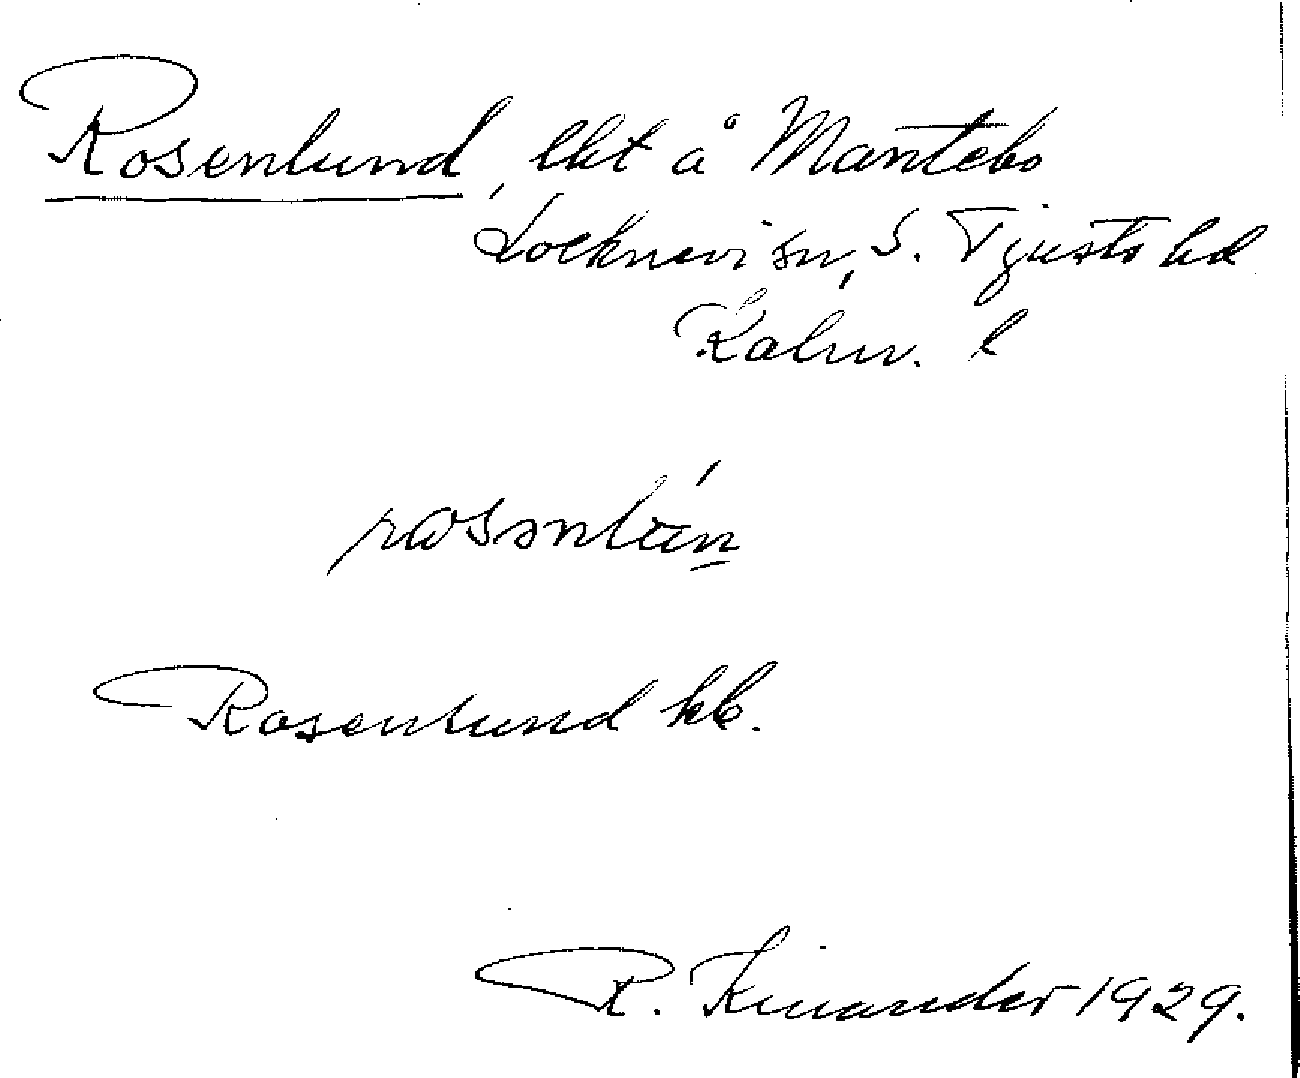 Rosenlund, lht å Mantebo
Locknevi sn, S. Tjusts hd
Kalm. l
Rosenlund hb.
R. Kinander 1929.